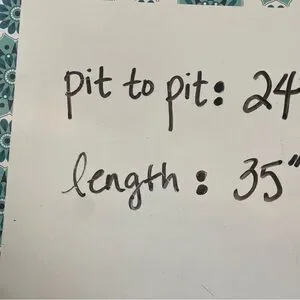 pit to pit: 24
length: 35"